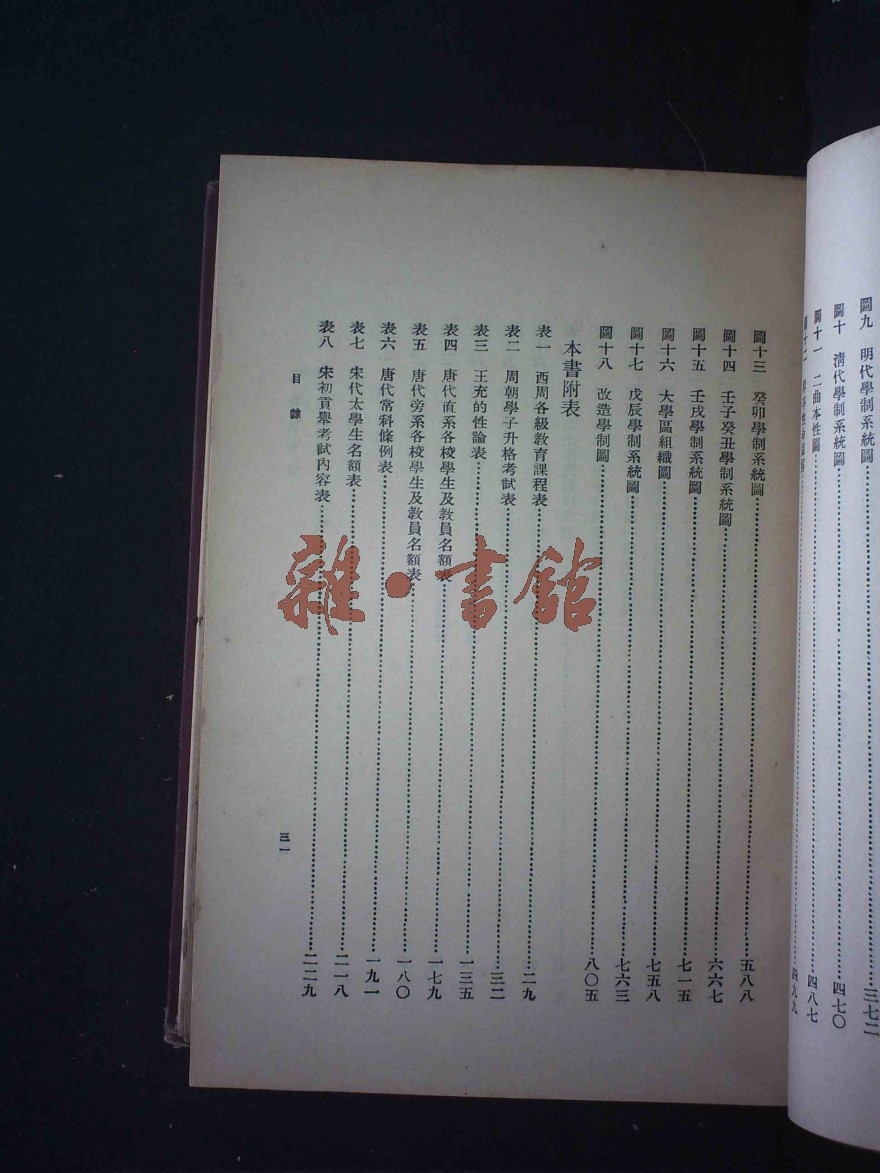 圖九　明代學制系統圖……三七二
圖十　清代學制系統圖……四七〇
圖十一　二曲本性圖……四八七
圖十二……四九九
圖十三　癸卯學制系統圖……五八八
圖十四　壬子癸丑學制系統圖……六六七
圖十五　壬戌學制系統圖……七一五
圖十六　大學區組織圖……七五八
圖十七　戊辰學制系統圖……七六三
圖十八　改造學制圖……八〇五
本書附表
表一　西周各級教育課程表……二九
表二　周朝學子升格考試表……三二
表三　王充的性論表……一三五
表四　唐代直系各校學生及教員名額表……一七九
表五　唐代旁系各校學生及教員名額表……一八〇
表六　唐代常科條例表……一九一
表七　宋代太學生名額表……二一八
表八　宋初貢舉考試內容表……二二九
目錄
三一
雜·書館